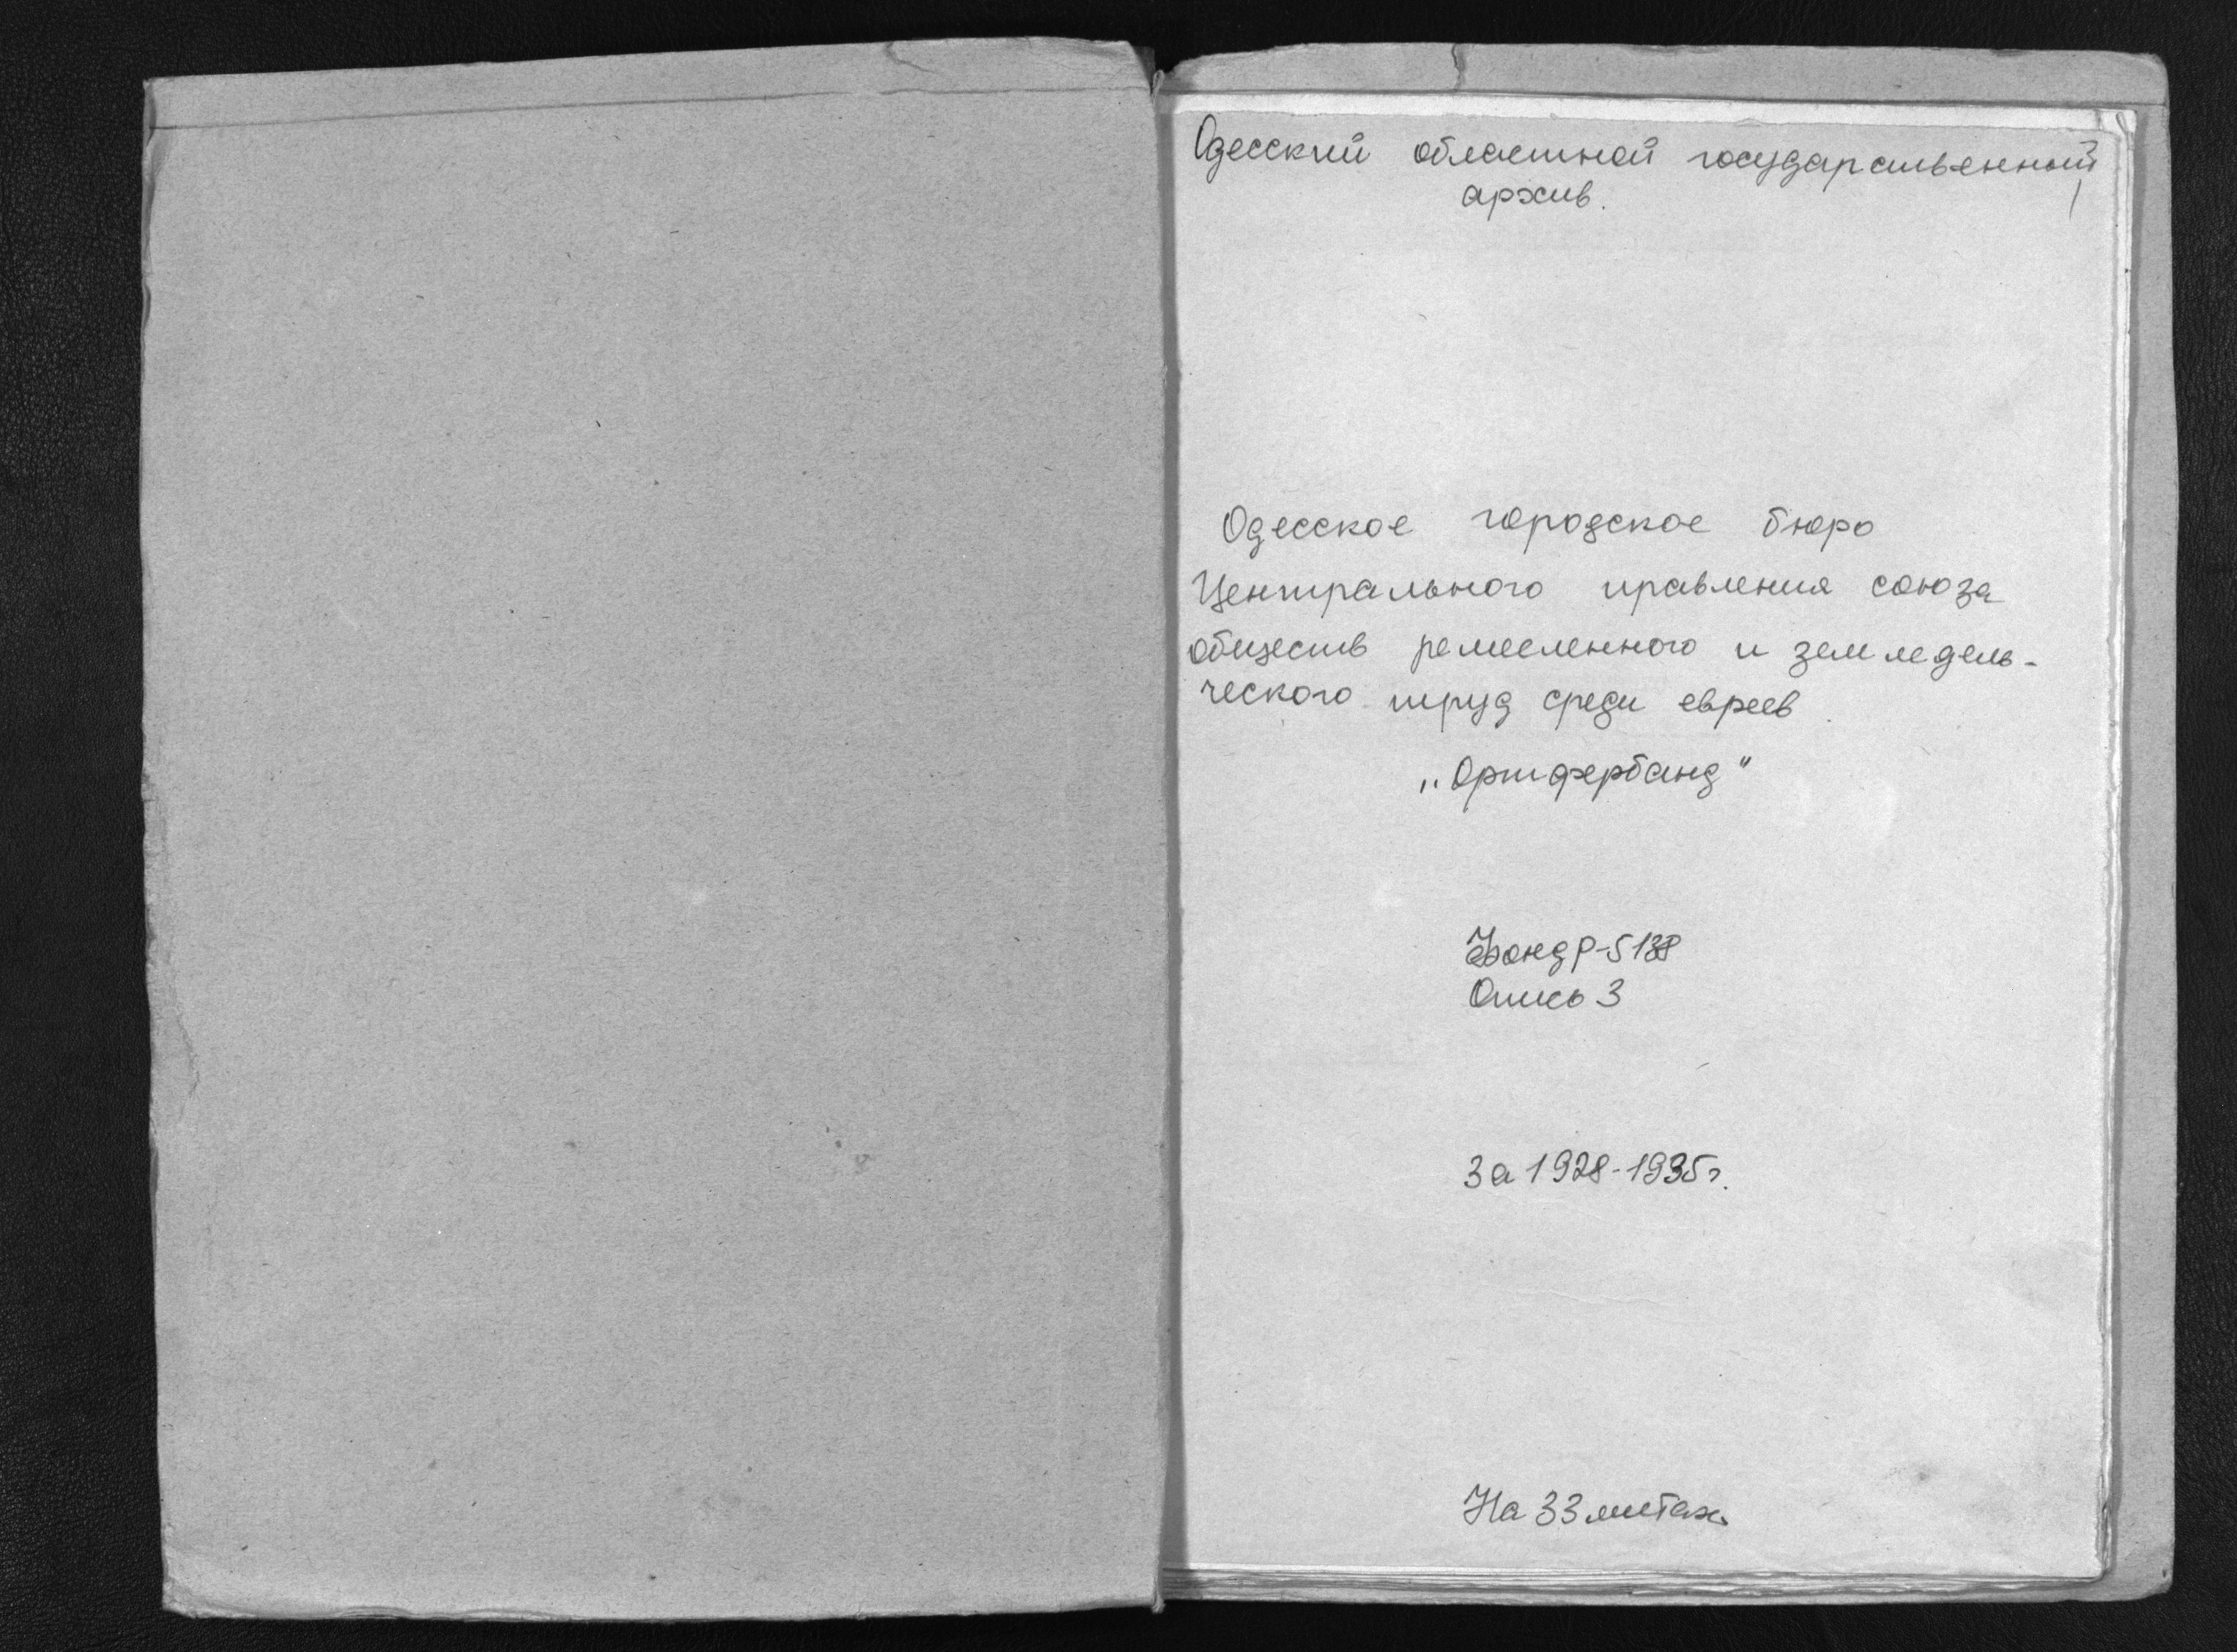 Одесский областной государственный
архив.
Одесское городское бюро
Центрального правления союза
обществ ремесленного и земледель-
ческого труд среди евреев
„Ортфербанд"
Фонд Р-5138
Опись 3
За 1928-1935г.
На 33 листах